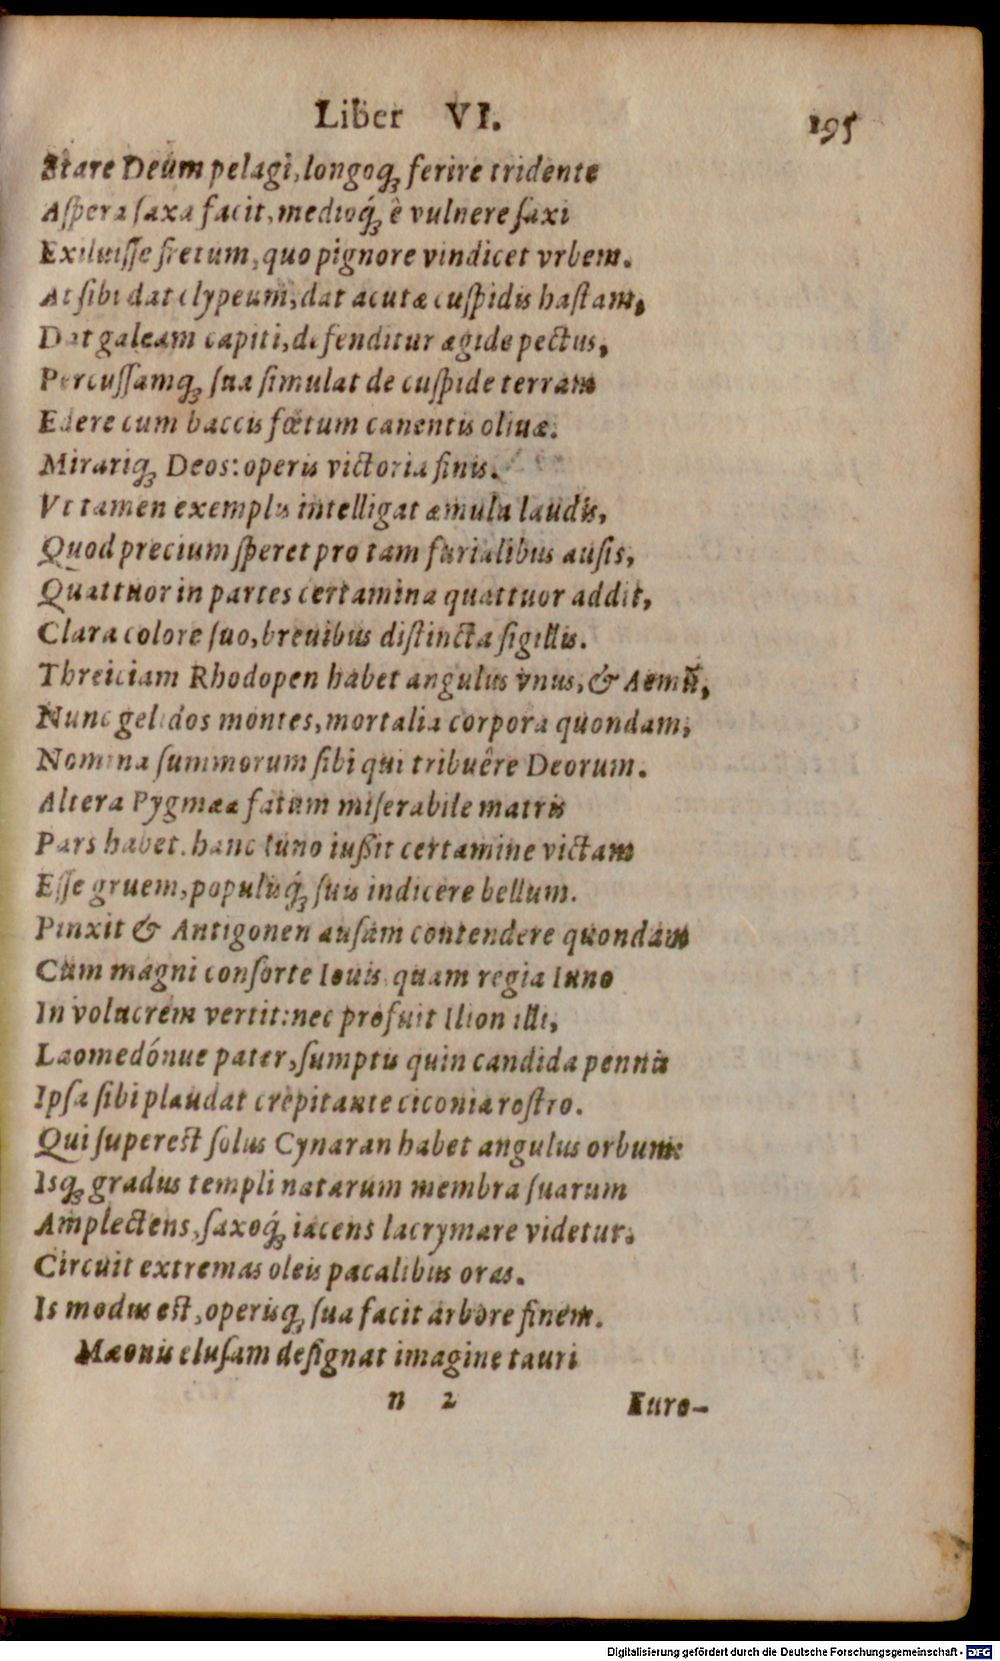 Liber VI. 195
Stare Deum pelagi, longoq́ꝫ ferire tridente
Aſpera ſaxa facit, medioq́ꝫ è vulnere ſaxi
Exiluiſſe fretum, quo pignore vindicet vrbem.
At ſibi dat clypeum, dat acutæ cuſpidis haſtam,
Dat galeam capiti, defenditur ægide pectus,
Percuſſamqꝫ ſua ſimulat de cuſpide terram
Edere cum baccis fœtum canentis oliuæ.
Mirariqꝫ Deos: operis victoria finis.
Vt tamen exemplis intelligat æmula laudis,
Quod precium ſperet pro tam furialibus auſis,
Quattuor in partes certamina quattuor addit,
Clara colore ſuo, breuibus diſtincta ſigillis.
Threiciam Rhodopen habet angulus vnus, & Aemū,
Nunc gelidos montes, mortalia corpora quondam,
Nomina ſummorum ſibi qui tribuêre Deorum.
Altera Pygmææ fatum miſerabile matris
Pars habet. hanc Iuno iußit certamine victam
Eſſe gruem, populisq́ꝫ ſuis indicere bellum.
Pinxit & Antigonen auſam contendere quondam
Cum magni conſorte Iouis, quam regia Iuno
In volucrem vertit: nec profuit Ilion illi,
Laomedónue pater, ſumptis quin candida pennis
Ipſa ſibi plaudat crepitante ciconia roſtro.
Qui ſupereſt ſolus Cynaran habet angulus orbum:
Isqꝫ gradus templi natarum membra ſuarum
Amplectens, ſaxoq́ꝫ iacens lacrymare videtur.
Circuit extremas oleis pacalibus oras.
Is modus eſt, operisqꝫ ſua facit arbore finem.
Mæonis eluſam deſignat imagine tauri
n 2 Euro-
Digitalisierung gefördert durch die Deutsche Forschungsgemeinschaft - DFG